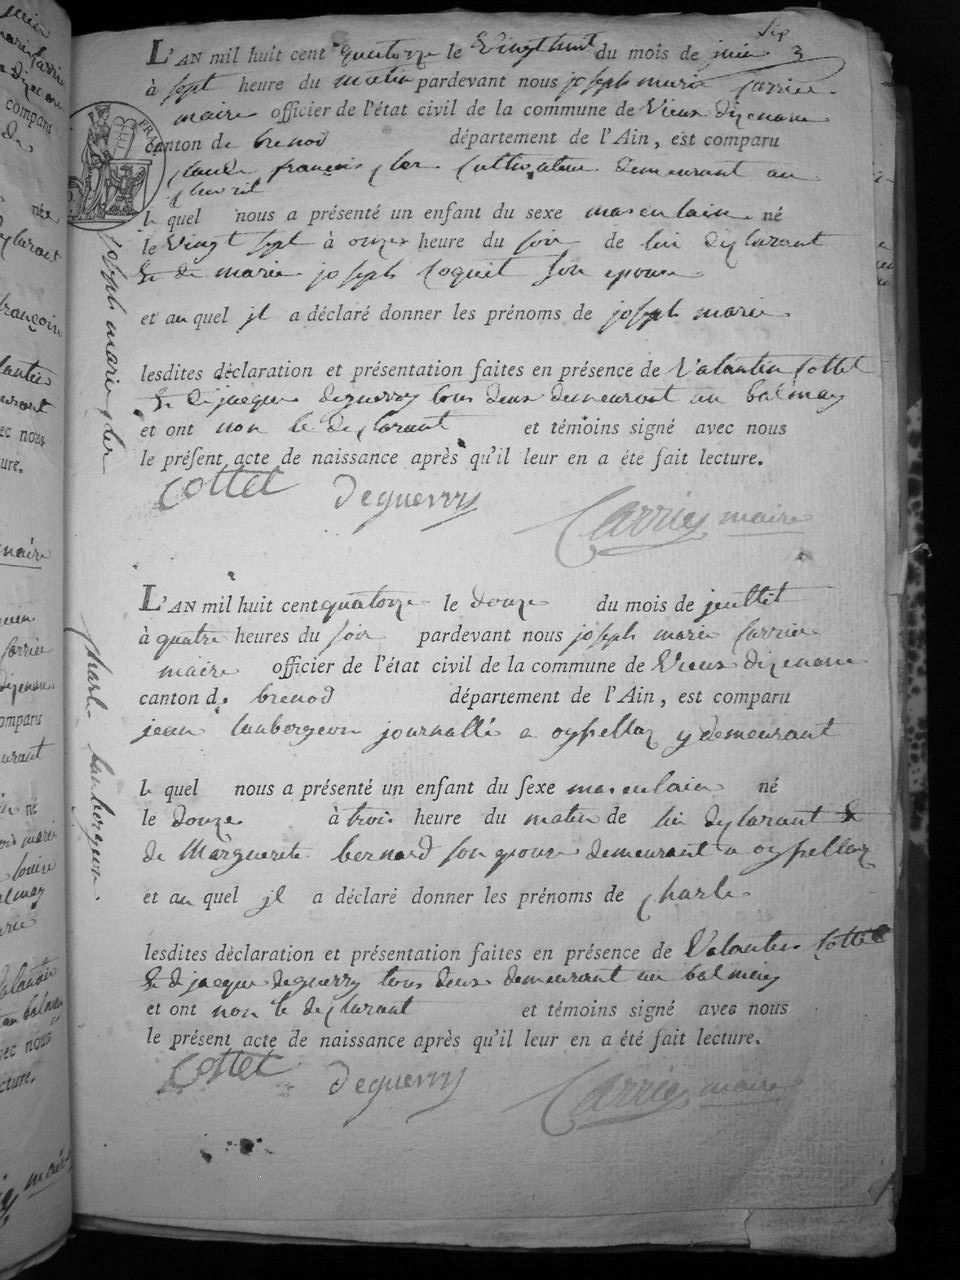 3
L'AN mil huit cent quatorze le Vingt huit du mois de juin
à sept heure du matin pardevant nous joseph marie Carrier
maire officier de l'état civil de la commune de Vieux dizenave
canton de brenod département de l'Ain, est comparu
claude françois cultivateur demeurant au
le quel nous a présenté un enfant du sexe masculain né
le Vingt sept à onze heure du soir de lui déclarant
Et de marie joseph Coquit son epouse
et au quel jl a déclaré donner les prénoms de joseph marie
lesdites déclaration et présentation faites en présence de Valantin Cottet
Et De jacque deguerry tous deux demeurant au balmay
et ont non le declarant et témoins signé avec nous
le présent acte de naissance après qu'il leur en a été fait lecture.
Cottet deguerry Carrier maire
joseph marie
L'AN mil huit cent quatorze le douze du mois de jeuillet
à quatre heures du soir pardevant nous joseph marie Carrier
maire officier de l'état civil de la commune de Vieux dizenave
canton de brenod département de l'Ain, est comparu
jean laubergeon journallié a oyssellaz y demeurant
le quel nous a présenté un enfant du sexe masculain né
le douze à trois heure du matin de lui déclarant Et
de Marguerite bernard son epouse demeurant a oyssellaz
et au quel jl a déclaré donner les prénoms de charle
lesdites déclaration et présentation faites en présence de Valantin Cottet
Et d jacque deguerry tous deux demeurant au balmay
et ont non le declarant et témoins signé avec nous
le présent acte de naissance après qu'il leur en a été fait lecture.
Cottet deguerry Carrier maire
charle laubergeon